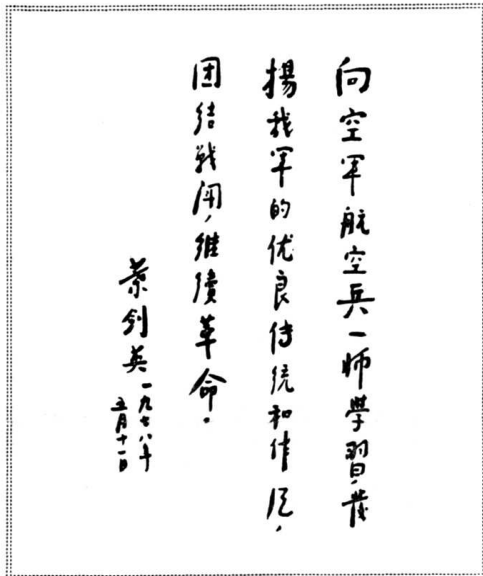 向空军航空兵一师学習，發
揚我军的优良传统和作风，
团结战闘，继續革命。
葉剑英一九七八年
五月十一日